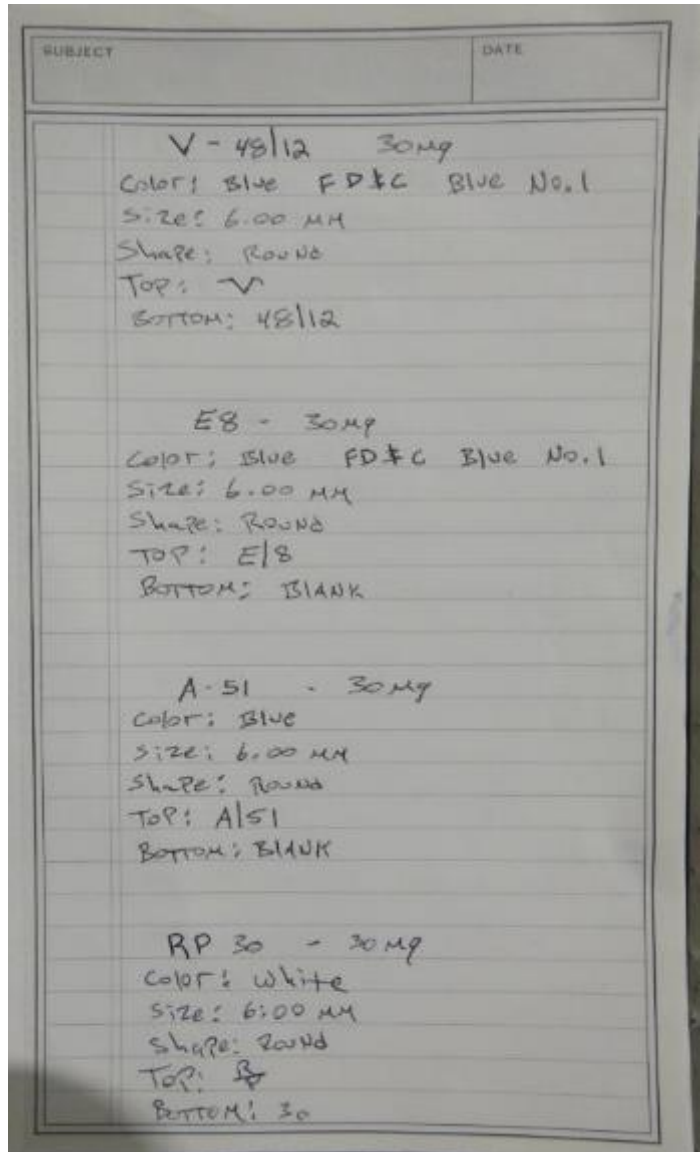 SUBJECT
DATE
V - 48/12 30mg
Color: Blue FD&C Blue No.1
Size: 6.00 MM
Shape: Round
Top: V
Bottom: 48/12
E8 - 30mg
Color: Blue FD&C Blue No.1
Size: 6.00 MM
Shape: Round
Top: E/8
Bottom: BLANK
A-51 - 30mg
Color: Blue
Size: 6.00 MM
Shape: Round
Top: A/51
Bottom: BLANK
RP 30 - 30mg
Color: White
Size: 6:00 MM
Shape: Round
Top: RP
Bottom: 30